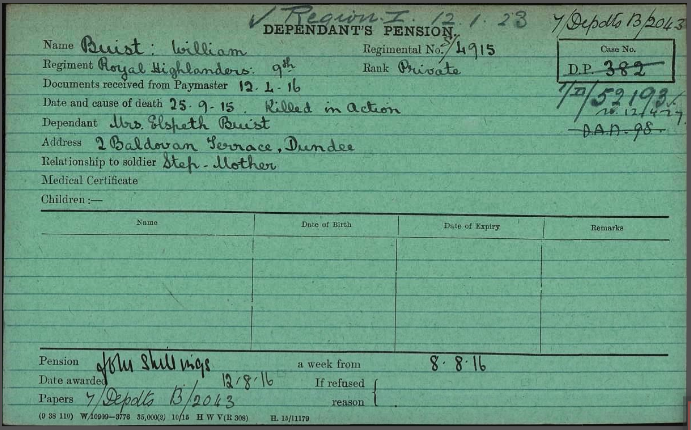 ✓ Region I. 12.1.23
7/Depdts B/2043
DEPENDANT'S PENSION.
Name Buist: William Regimental No. S/4915
Case No.
Regiment Royal Highlanders: 9th Rank Private
D.P. 382
Documents received from Paymaster 12.4.16
Date and cause of death 25.9.15. Killed in Action
52193
Dependant Mrs. Elspeth Buist
D.A.A. 98
Address 2 Baldovan Terrace, Dundee
Relationship to soldier Step-Mother
Medical Certificate
Children :—
Name Date of Birth Date of Expiry Remarks
Pension four Shillings a week from 8.8.16
Date awarded 12.8.16 If refused {
Papers 7/Depdts B/2043 reason
(9 38 119) W/10900—3776 35,000(2) 10/15 H W V(R 308) H. 15/11179